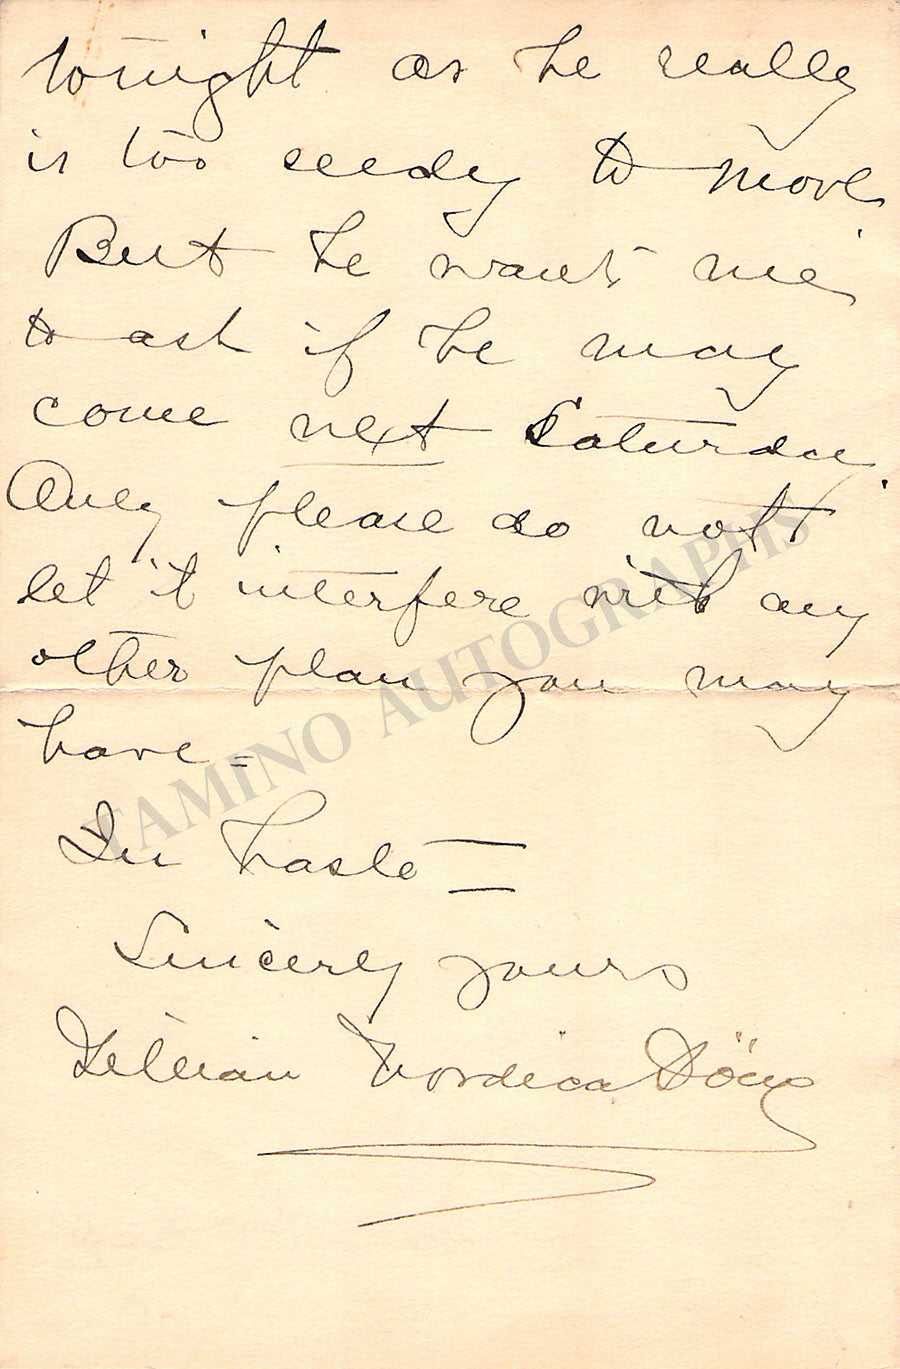 tonight as he really
is too seedy to move
But he wants me
to ask if he may
come next Saturday.
Only please do not
let it interfere with any
other plan you may
have =
In haste =
Sincerely yours
Lillian Nordica Döme
TAMINO AUTOGRAPHS